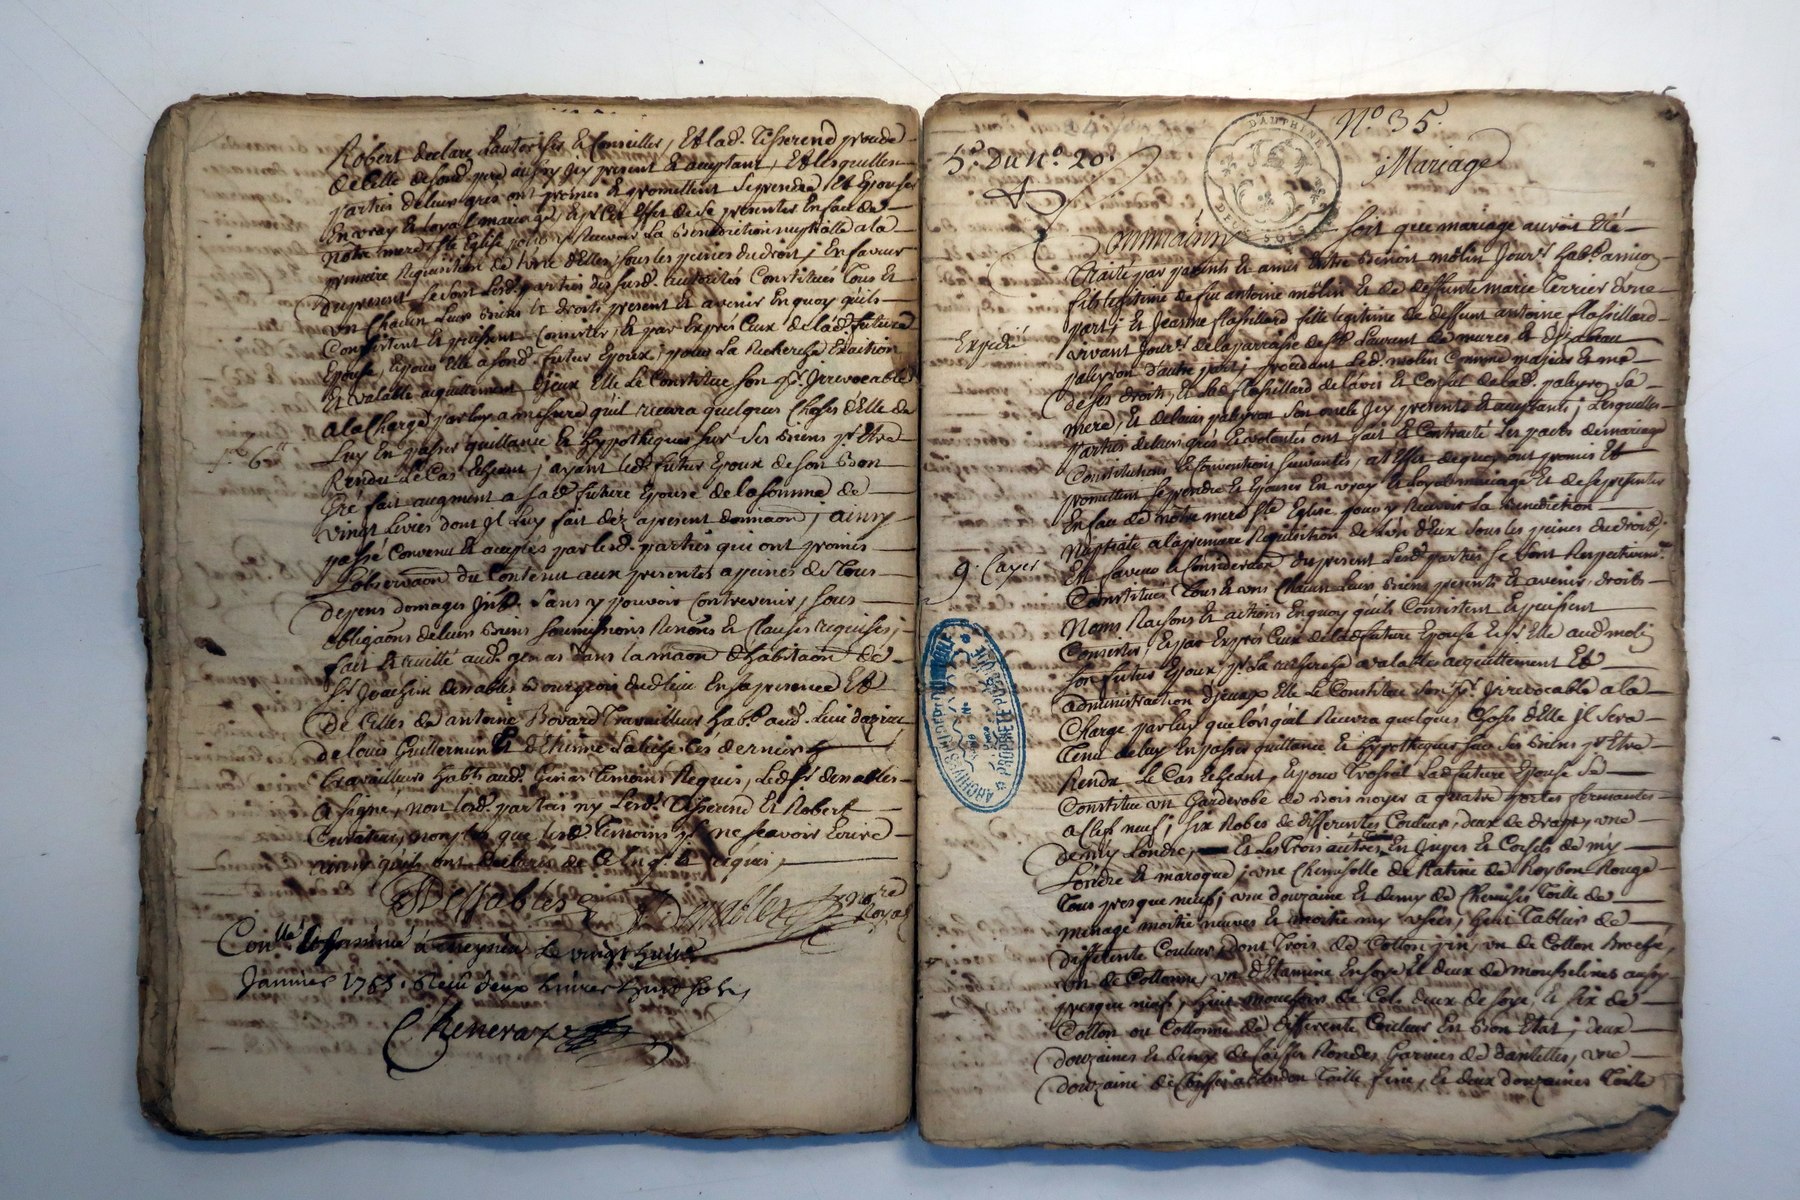 Robert declare L'autoriser & Conseiller, Et lad. Tisserend procede
de Celle de sond. pere aussy Icy present & acceptant, Et lesquelles
parties de leur gré ont promis & promettent Se prendre & Epouser
En vray & loyal mariage, & pr Cet Effet de se presenter En face de
Notre mere Ste Eglise pour y Recevoir La Benediction nuptialle a la
premiere Requisition de L'une d'Elles, sous les peines du droit; En faveur
du present Se sont Lesd. parties des susd. autorités Constitués Tous Et
un Chacun Leurs Biens & droits present Et avenir En quoy qu'ils
Consistent & puissent Consister, & par Exprés Ceux de lad. future
Epouse, Epour Elle a sond. futur Epoux, pour La Recherche Exaction
Et valable acquittement d'Jceux Elle Le Constitue Son pr. Irrevocable
a la Charge par luy a mesure qu'il recevra quelques Choses d'Elle de
Luy En passer quillance & hypothequer sur Ses Biens pr Etre
Rendu Le Cas Echeant; ayant led. futur Epoux de son Bon
Gré fait augment a sad. future Epouse de la somme de
vingt Livres dont Il Luy fait dez apresent donnaon; ainsy
passé Convenu & accepté par lesd. parties qui ont promis
L'observaon du Contenu aux presentes a peines de Tous
depens domages Jnts. Sans y pouvoir Contrevenir, sous
obligaons de leurs Biens soumissions Renons & Clauses requises;
fait & recitté aud. genas dans la maon d'habitaon de
Sr Joachim desnables Bourgeois dud. lieu En sa presence Et
de Celles de antoine Bovard Travailleur habt. aud. Lieu
de Louis Guillermin & d'Etienne Ces derniers
travailleurs habts aud. Genas Temoins Requis, Led. Sr. desnables
a signé, non lesd. parties ny lesd. Tisserend Et Robert
Curateur, non plus que lesd. Temoins pr ne scavoir Ecrire
ainsy qu'ils ont declaré de Ce Enq. & requis,
Desnables Desnables nore
Royal
Conllé & à meyzieu Le vingt huit
Janvier 1755. Reçu deux Livres huit sols
Chenevaz
No 35.
5e. Du No. 20.
Mariage
DAUPHINÉ
DEUX SOLS
Soit que mariage auroit Eté
Traité par parents & amis Entre Benoit molin Jourr. habt.
fils legitime de feu antoine molin Et de deffunte marie Terrier d'une
part; Et Jeanne flassillard fille legitime de deffunt antoine flassillard
Expedié
vivant Jourr. de la parroisse de St. Laurent de mures Et d'Izabeau
paleyron d'autre part; procedant Led. molin Comme majeur Et me
de ses droits, Et lad. flassillard de l'avis Et Conseil de lad. paleyron Sa
mere, Et de Louis paleyron son oncle Icy presents & acceptants; Lesquelles
parties de leur gres & volontés ont fait & Contracté Les pactes de mariage
Constitutions & Conventions suivantes, a l'Effet de quoy ont promis Et
promettent Se prendre & Epouser En vray & loyal mariage Et de se presenter
En face de notre mere Ste Eglise pour y Recevoir La Benediction
Nuptiale a la premiere Requisition de L'un d'Eux Sous les peines du droit;
9e. Cayer
En faveur & Consideraon du present Lesd. parties Se sont Respectivemt.
Constitués Tous & uns Chacun Leurs Biens presents & avenir, droits
Noms Raisons Et actions En quoy qu'ils Consistent & puissent
Consister, & par Exprés Ceux de lad. future Epouse & pr Elle aud. molin
son futur Epoux pr. La recherche a valables acquittement Et
administraon d'Jceux Elle Le Constitue son pr. Irrevocable a la
Charge par luy que lorsqu'il Recevra quelques Choses d'Elle Il Sera
Tenu de luy En passer quittance & hypothequer sur Ses Biens pr Etre
Rendu Le Cas Echeant, Epour Trossel Lad. future Epouse Se
Constitue un Garderobe de Bois noyer a quatre portes fermantes
a Clef neuf; six Robes de differentes Couleurs, deux de drap, une
demy Londre, Et Les Trois autres En Jupes Et Corsets de my
Londre Et maroque; une Chemisolle de Ratine de Roybon Rouge
Tous presque neuf; une douzaine Et demy de Chemises Toille de
menage moitié neuves Et moitié my usées, huit Tabliers de
differente Couleur, dont Trois de Cotton fin, un de Cotton Broché,
un de Cottonne, un d'Etamine En soye Et deux de mousselines aussy
presque neufs, huit mouchoirs de Cols deux de soye, Et six de
Cotton ou Cottonne de differente Couleur En Bon Etat; deux
douzaines Et demy de Coiffes Rondes Garnies de dantelles, une
douzaine de Coiffes Toille fine, Et deux douzaines Toille
ARCHIVES
PROPRIÉTÉ PUBLIQUE